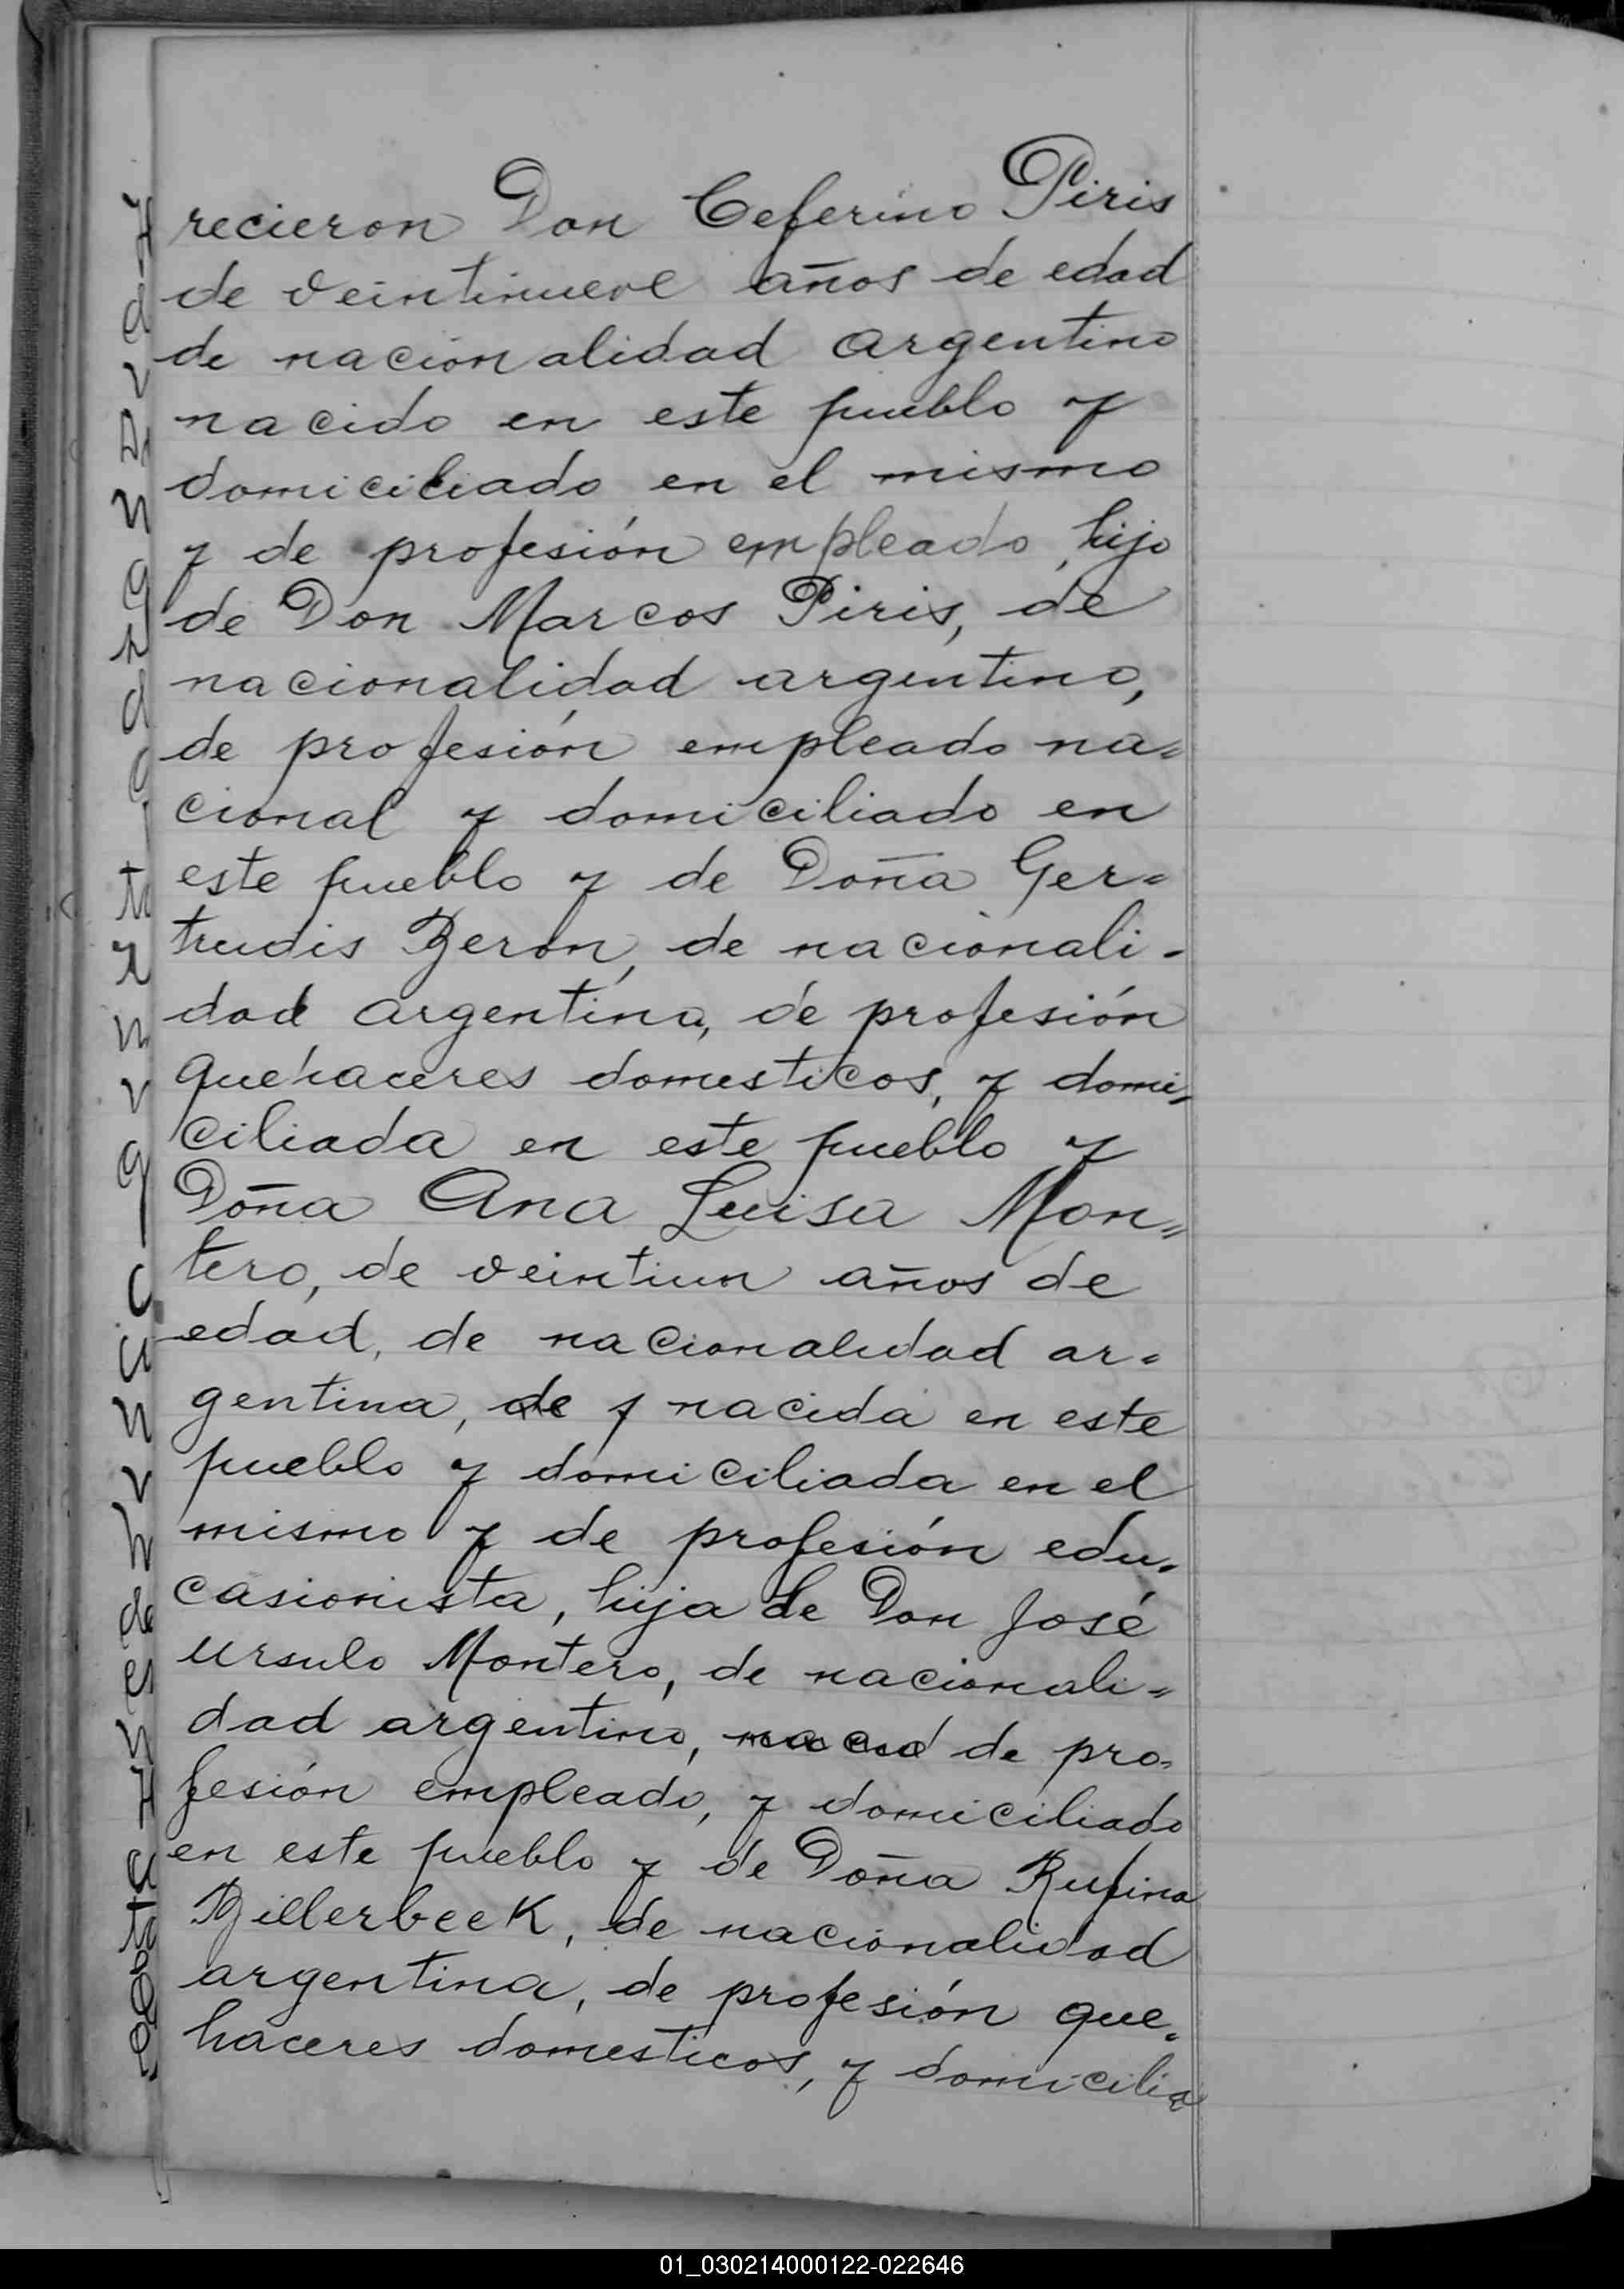 recieron Don Ceferino Piris
de veintinueve años de edad
de nacionalidad argentino
nacido en este pueblo y
domiciliado en el mismo
y de profesión empleado, hijo
de Don Marcos Piris, de
nacionalidad argentino,
de profesión empleado na=
cional y domiciliado en
este pueblo y de Doña Ger=
trudis Beron, de nacionali-
dad argentina, de profesión
quehaceres domesticos, y domi=
ciliada en este pueblo y
Doña Ana Luisa Mon=
tero, de veintiun años de
edad, de nacionalidad ar=
gentina, de y nacida en este
pueblo y domiciliada en el
mismo y de profesión edu=
casionista, hija de Don José
Ursulo Montero, de nacionali=
dad argentino, de pro=
fesión empleado, y domiciliado
en este pueblo y de Doña Rufina
Billerbeek, de nacionalidad
argentina, de profesión que=
haceres domesticos, y domicilia
01_030214000122-022646